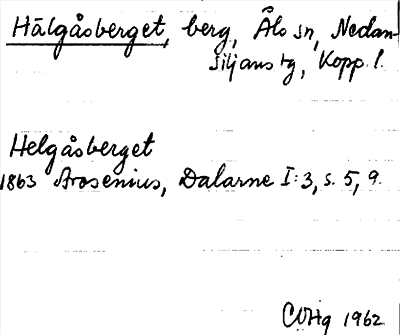 Hälgåsberget, berg, Åls sn, Nedan-
Siljans tg, Kopp. l.
Helgåsberget
1863 Arosenius, Dalarne I:3, s. 5, 9.
1962